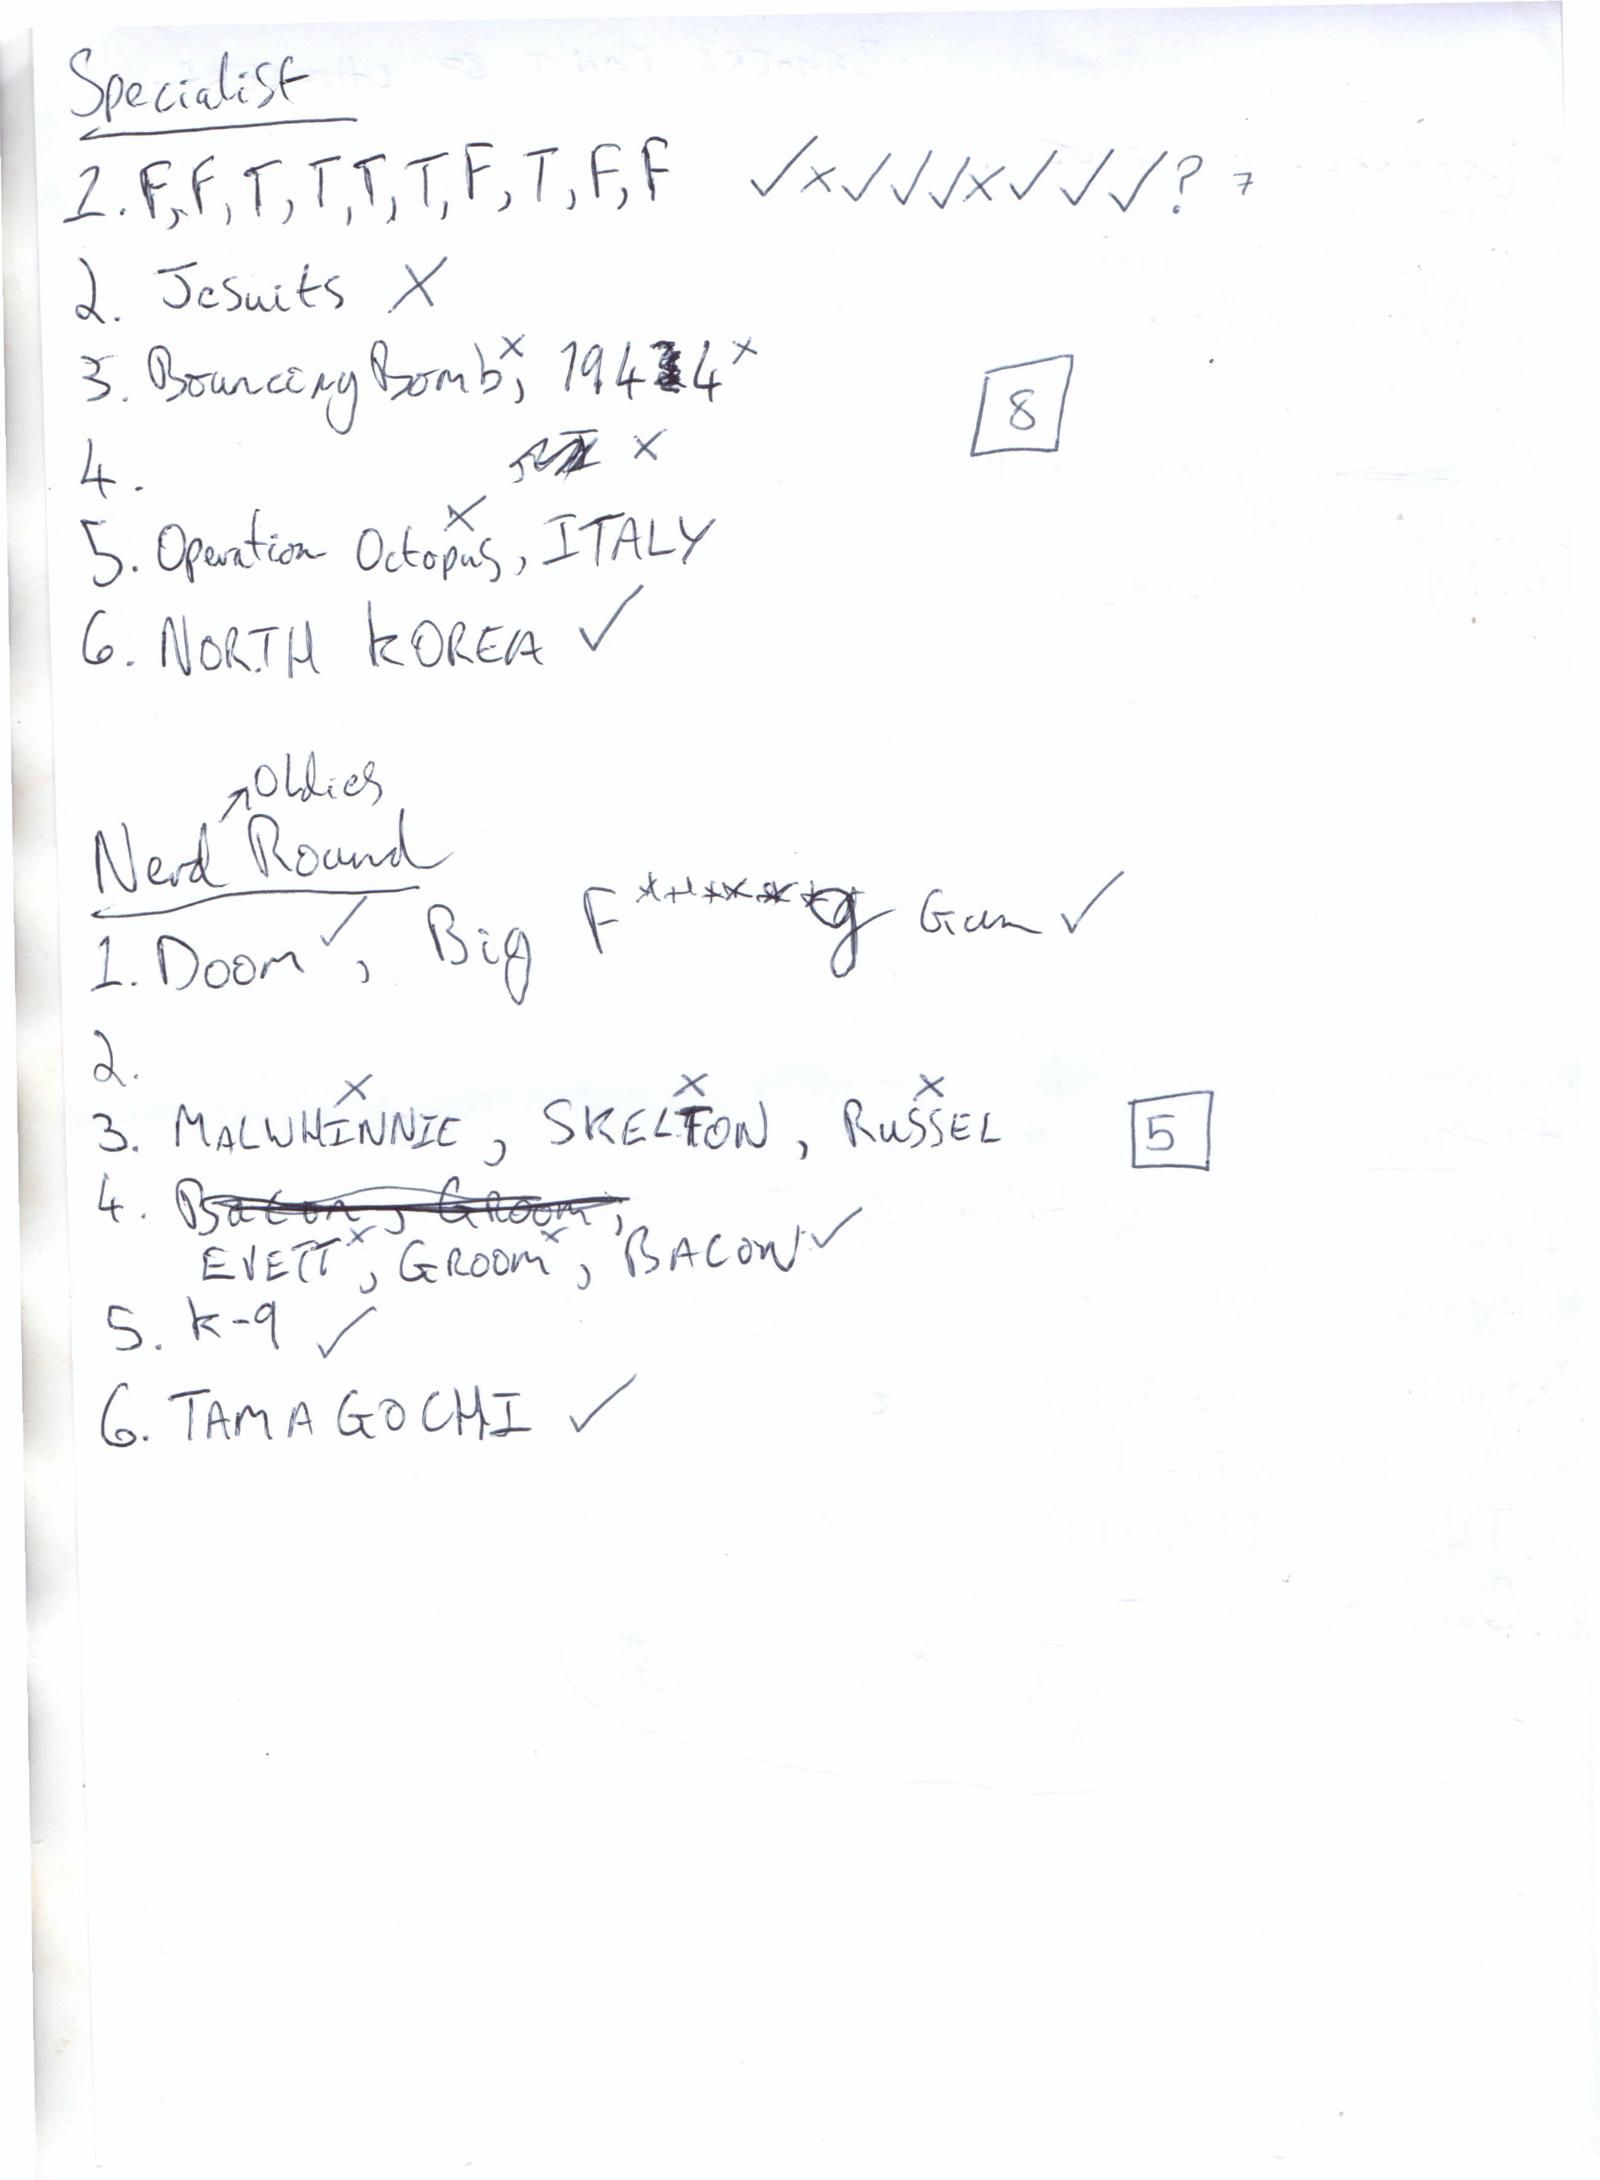 Specialist
1. F, F, T, T, T, T, F, T, F, F ✓ x ✓ ✓ ✓ x ✓ ✓ ✓ ? 7
2. Jesuits X
3. Bouncing Bomb x, 1944 x
8
4. x
5. Operation Octopus x, ITALY
6. NORTH KOREA ✓
Oldies
Nerd Round
1. Doom ✓, Big F******g Gun ✓
2.
3. MALWHINNIE x, SKELTON x, RUSSEL x
5
4. Bacon, Groom,
EVETT x, GROOM x, BACON ✓
5. K-9 ✓
6. TAMAGOCHI ✓